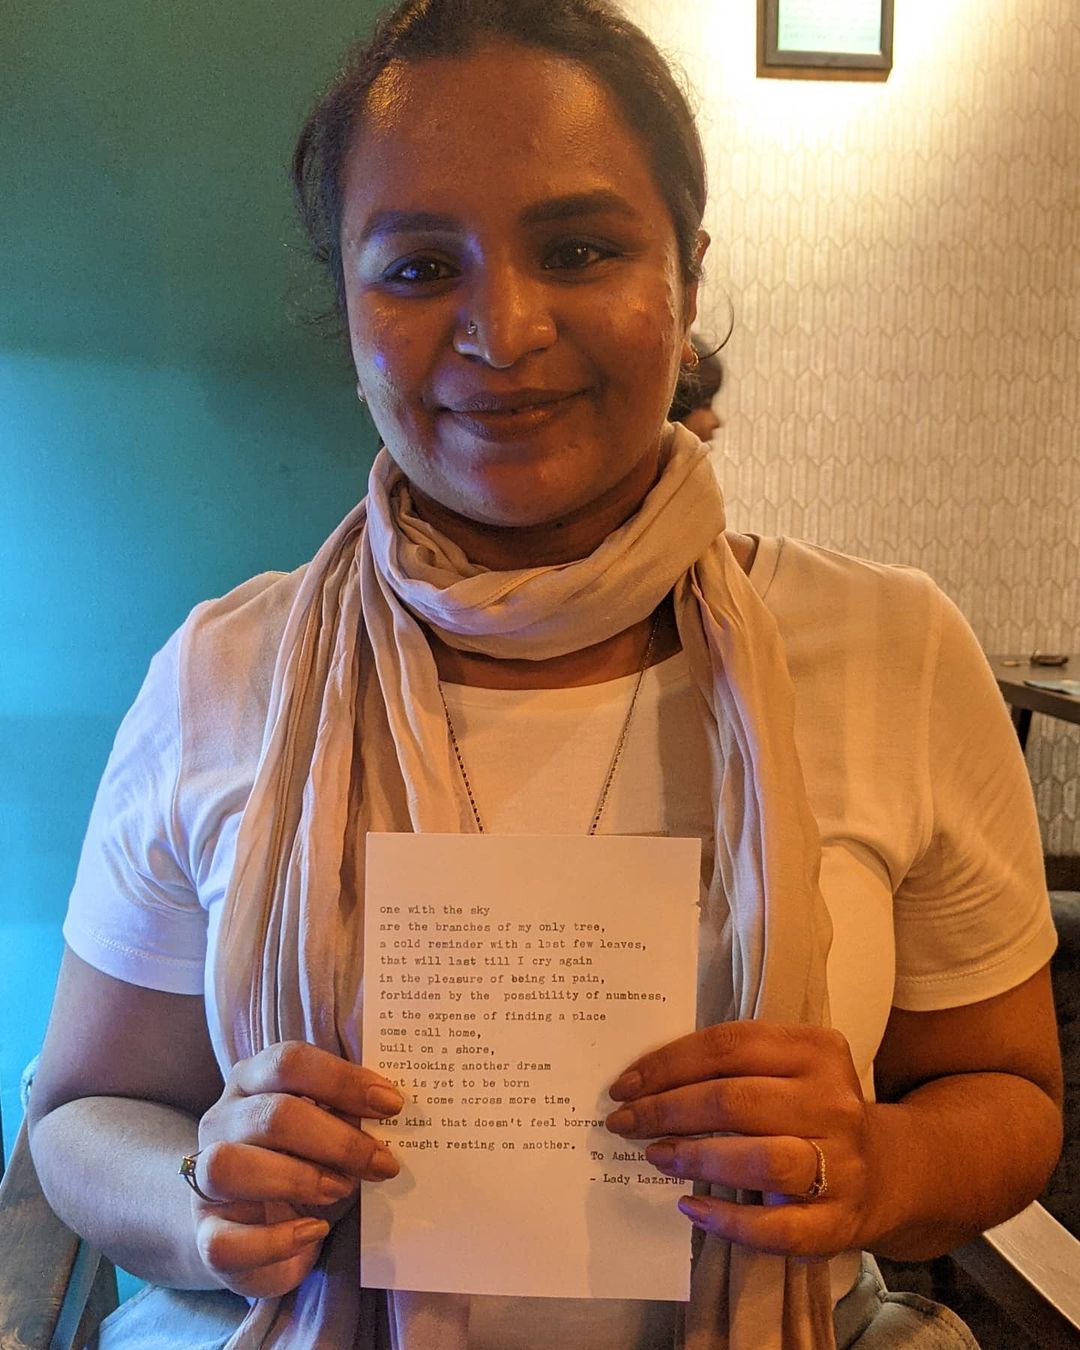 one with the sky
are the branches of my only tree,
a cold reminder with a last few leaves,
that will last till I cry again
in the pleasure of being in pain,
forbidden by the possibility of numbness,
at the expense of finding a place
some call home,
built on a shore,
overlooking another dream
is yet to be born
I come across more time,
the kind that doesn't feel
caught resting on another.
To
- Lady Lazarus